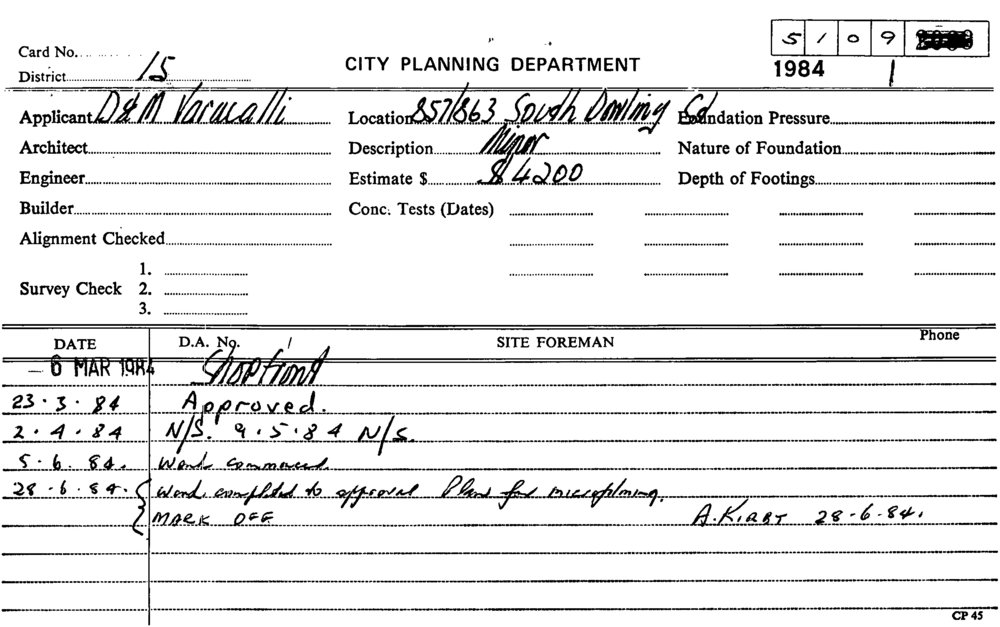 5 1 0 9
Card No.
District 15
CITY PLANNING DEPARTMENT
1984 1
Applicant D & M Varacalli Location 857/863 South Dowling Foundation Pressure
Architect Description Minor Nature of Foundation
Engineer Estimate $ $ 4200 Depth of Footings
Builder Conc. Tests (Dates)
Alignment Checked
1.
Survey Check 2.
3.
DATE D.A. No. / SITE FOREMAN Phone
– 6 MAR 1984 Shopfront
23·3·84 Approved.
2·4·84 N/S. 9·5·84 N/S.
5·6·84. Work commenced.
28·6·84. Work completed to approval Plans for microfilming.
MARK OFF A. KIRBY 28-6-84.
CP 45